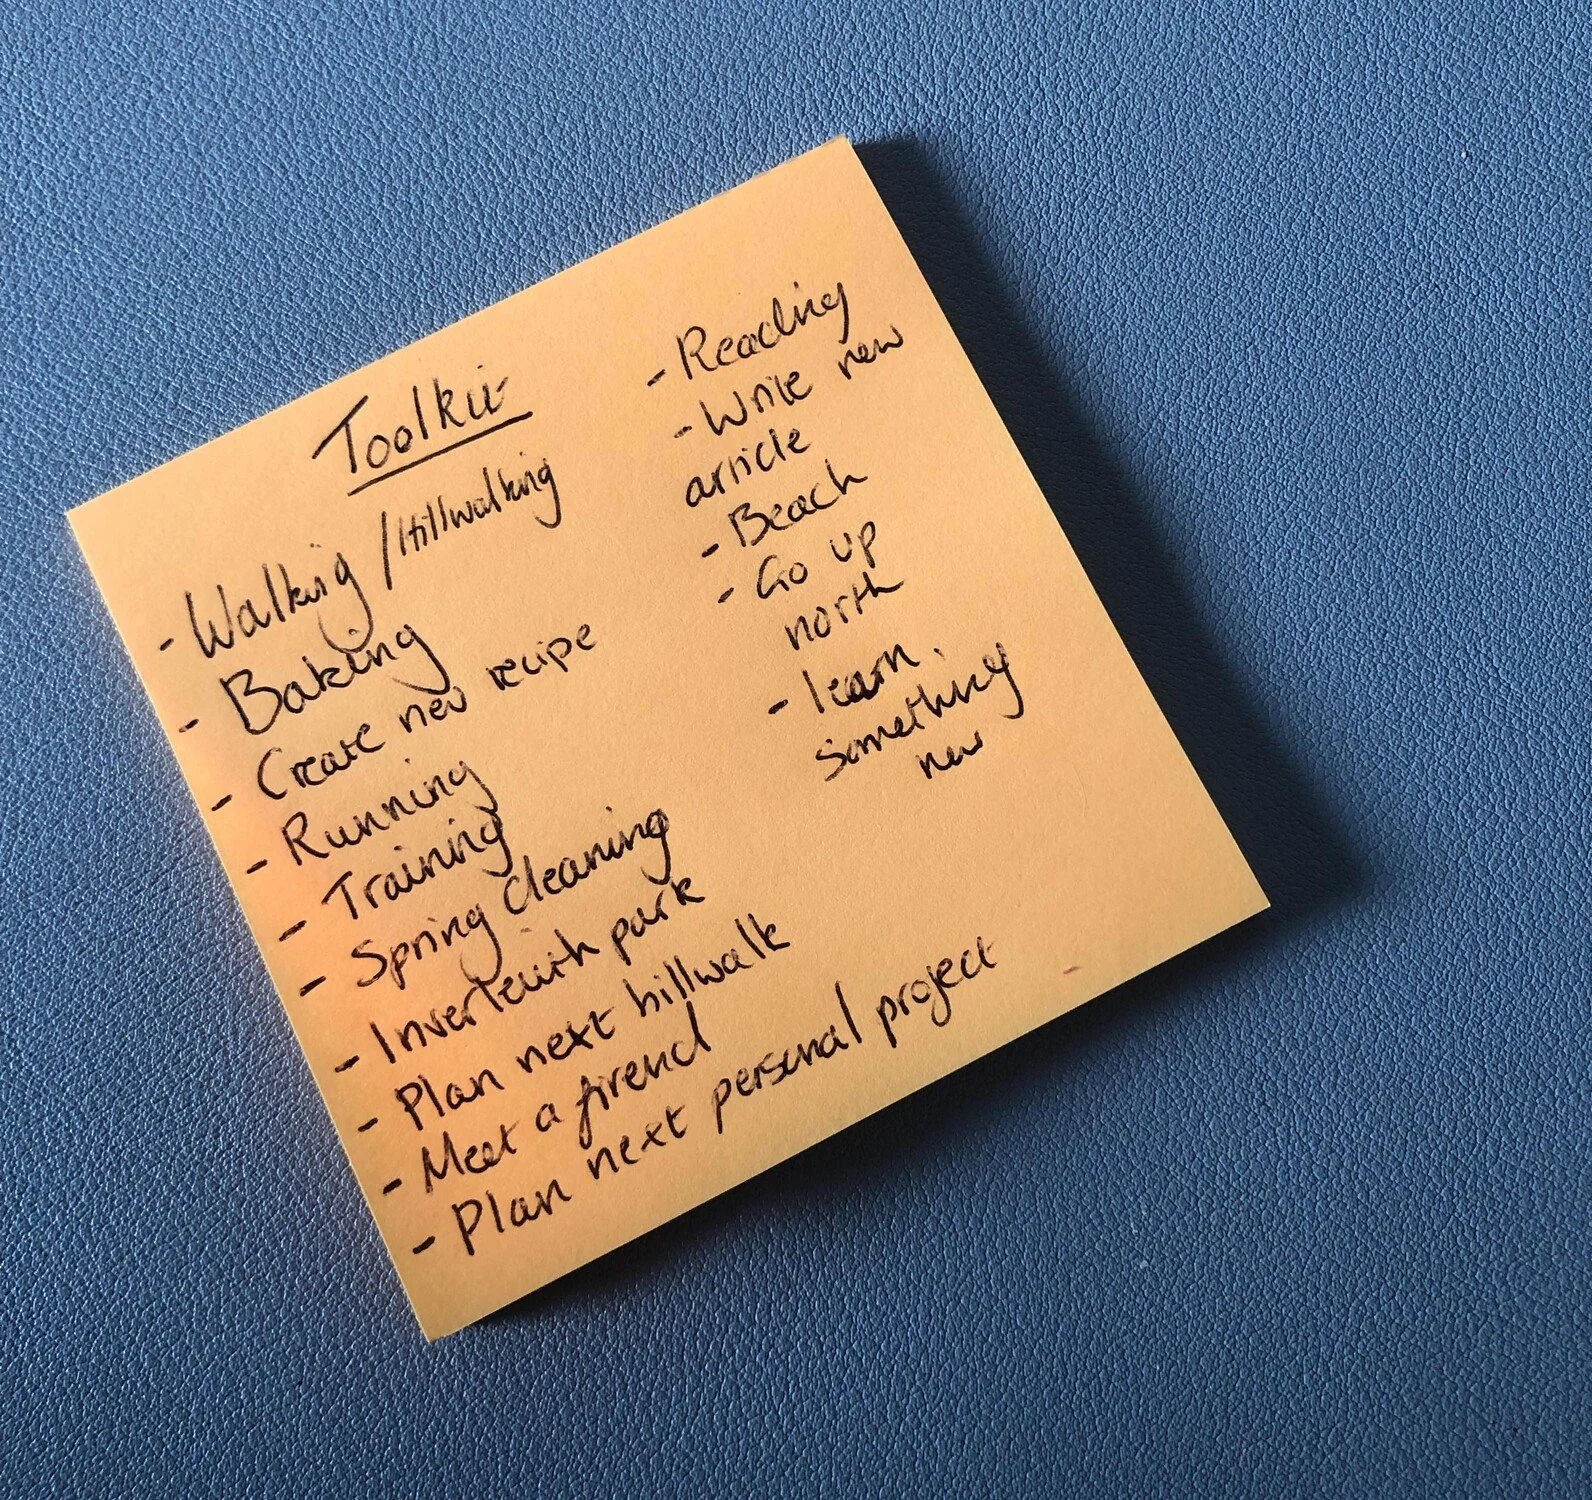 Toolkit
- Walking / Hillwalking
- Baking
- Create new recipe
- Running
- Training
- Spring Cleaning
- Inverleith park
- Plan next hillwalk
- Meet a firend
- Plan next personal project
- Reading
- Write new
article
- Beach
- Go up
north
- learn
something
new